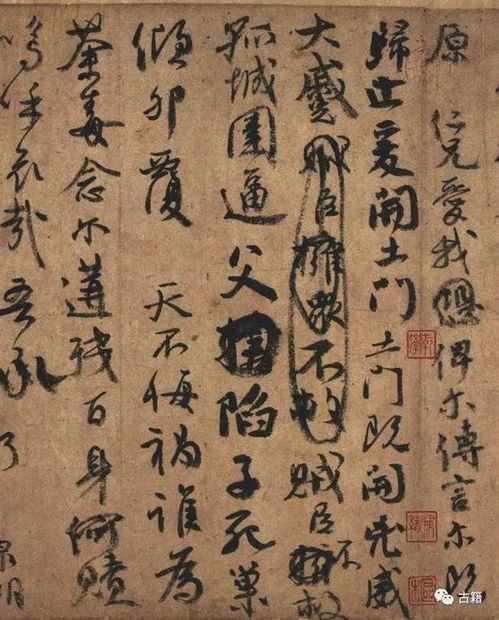 原 仁兄愛我恐俾尔傳言尔既
歸止爰開土門土門既開凶威
大蹙賊臣擁衆不救賊臣不救
孤城圍逼父陷子死巢
傾卵覆 天不悔禍誰為
荼毒念尔遘殘百身何贖
嗚呼哀哉吾承
泉明
古籍